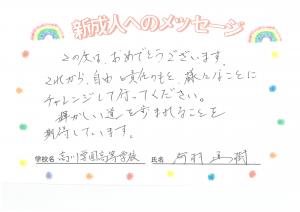 新成人へのメッセージ
この度は、おめでとうございます。
これから、自由と責任のもと、様々なことに
チャレンジして行ってください。
輝かしい道を歩まれることを
期待しています。
学校名 高川学園高等学校 氏名 村 樹